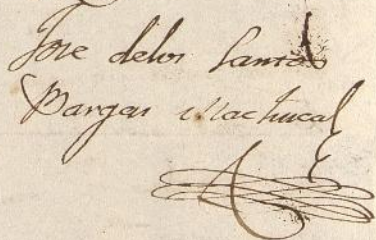 Jose delos Santos
Bargas Machuca